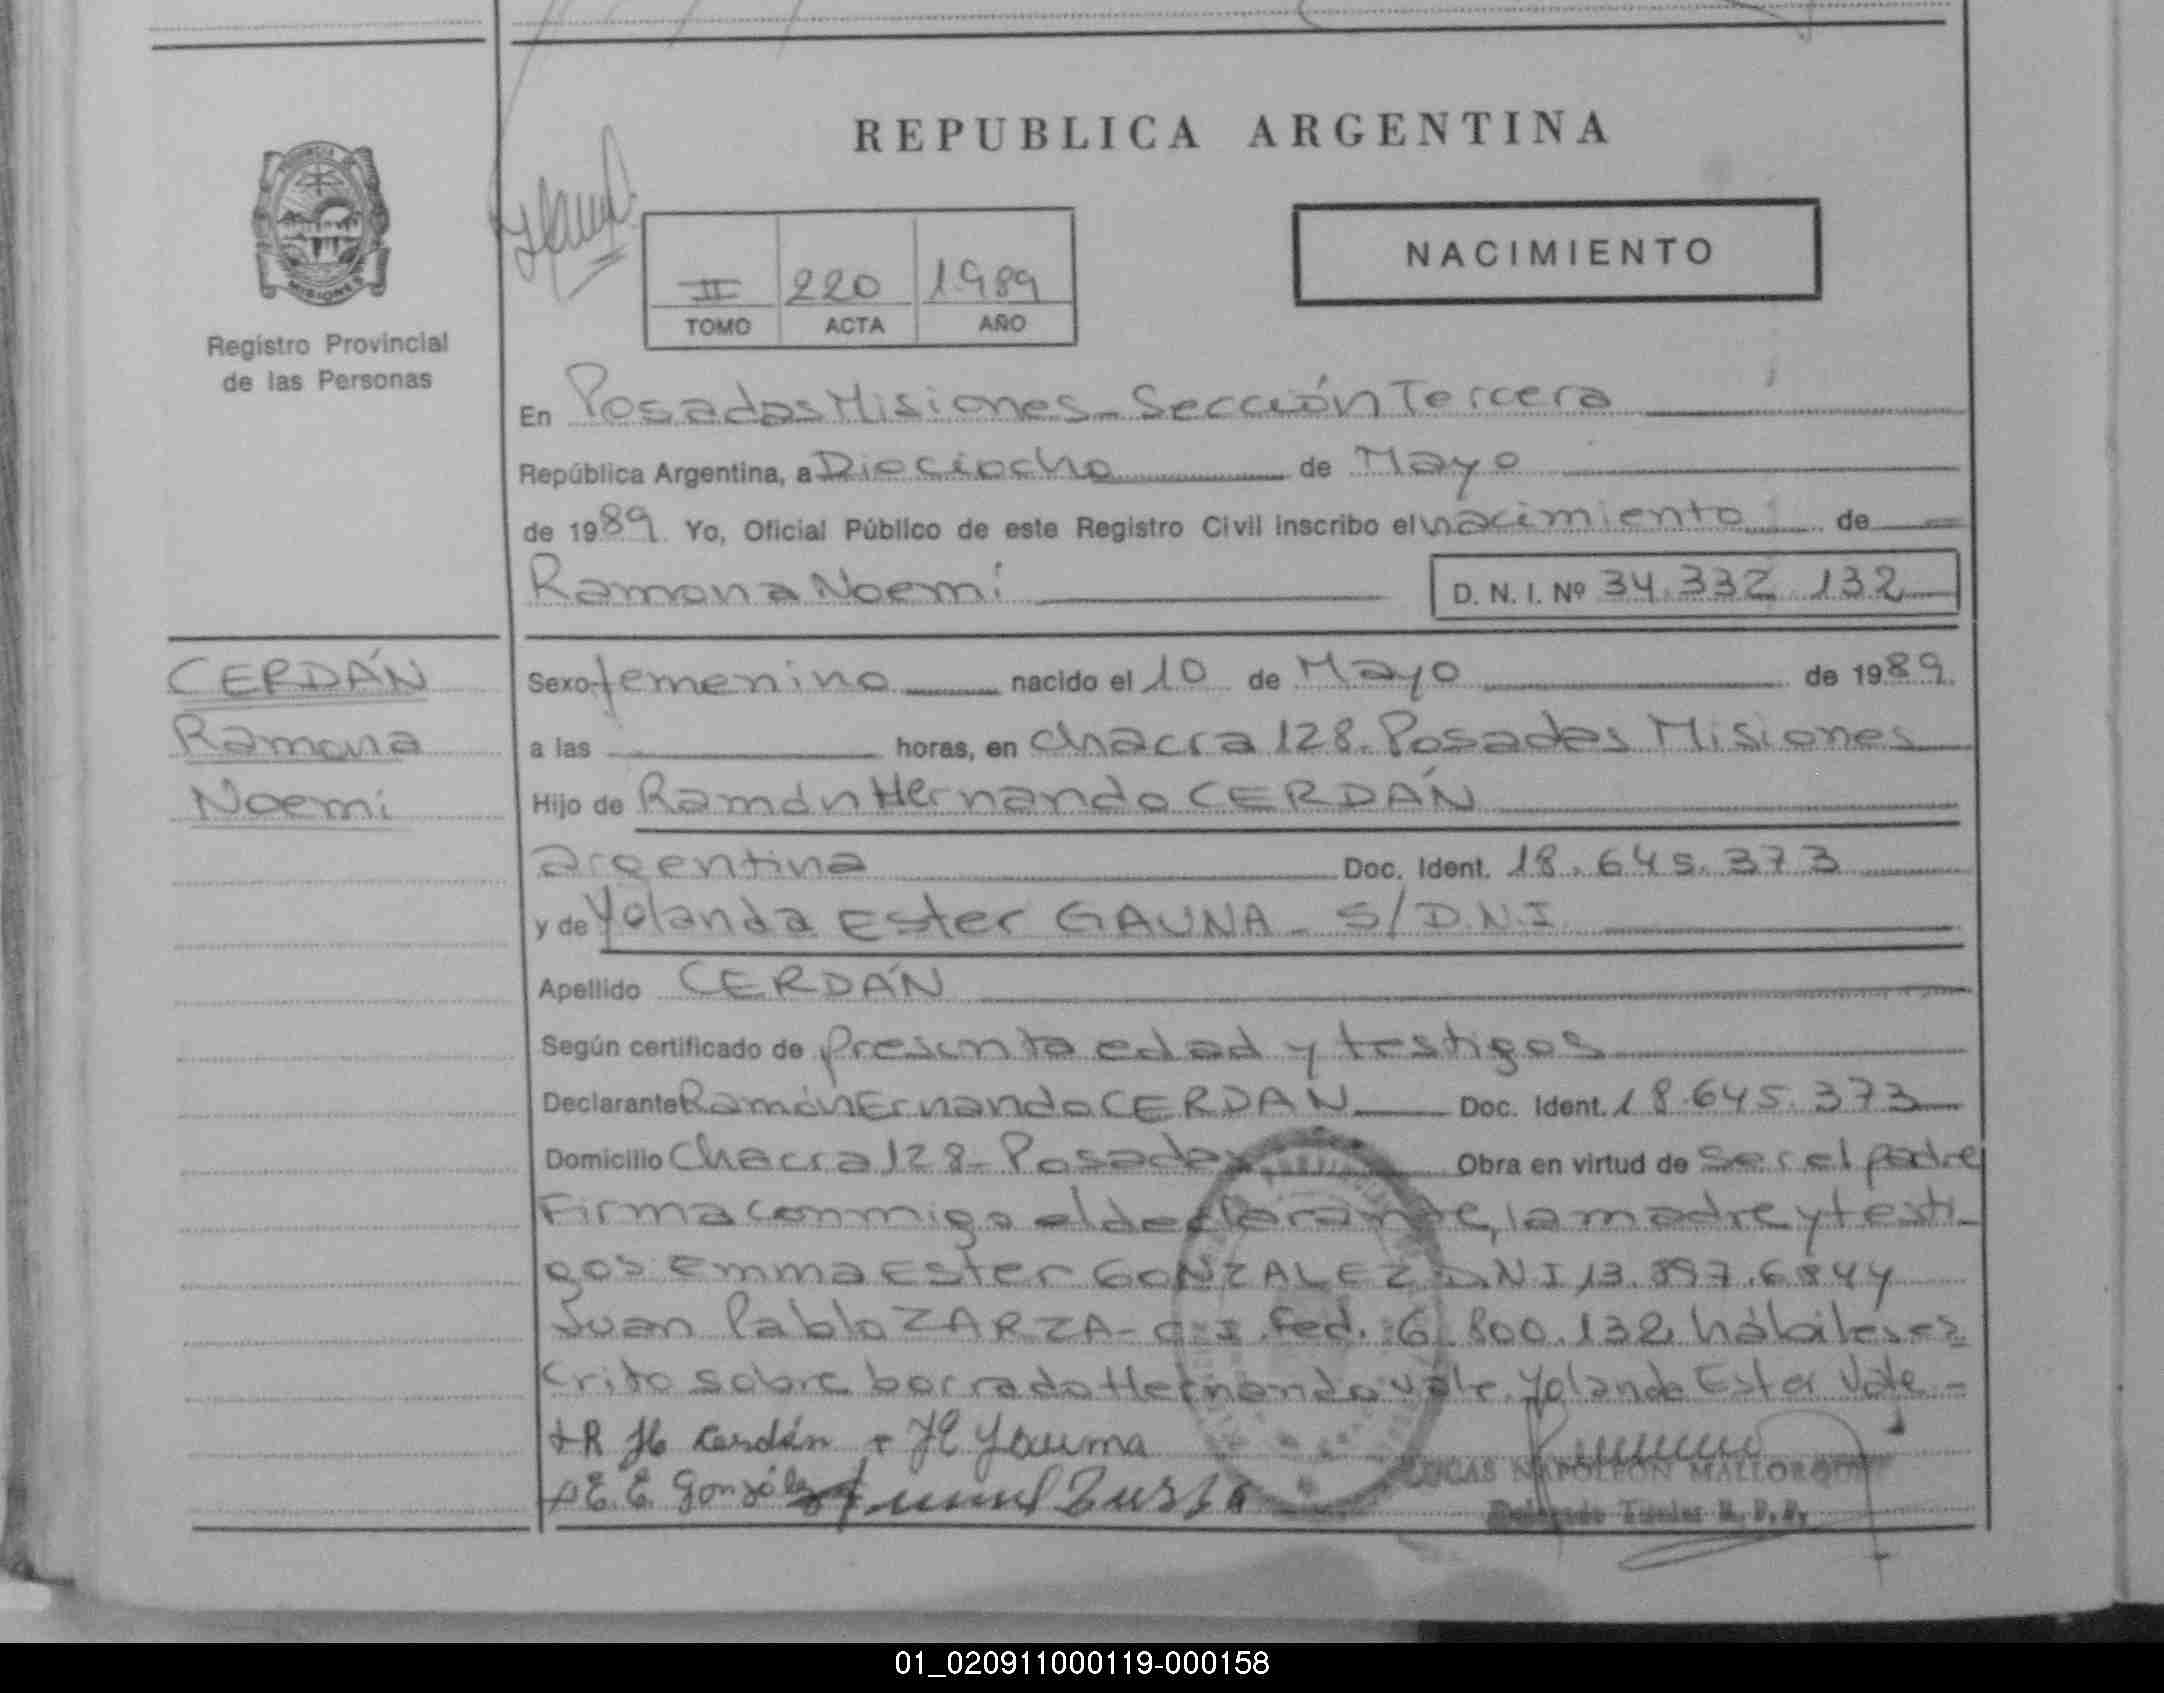 REPUBLICA ARGENTINA
NACIMIENTO
II 220 1989
TOMO ACTA AÑO
MISIONES
Registro Provincial
de las Personas
En Posadas Misiones - Sección Tercera
República Argentina, a Dieciocho de Mayo
de 1989 Yo, Oficial Público de este Registro Civil inscribo el nacimiento de
Ramona Noemí
D. N. I. Nº 34.332.132
CERDÁN
Ramona
Noemí
Sexo femenino nacido el 10 de Mayo de 1989.
a las horas, en Chacra 128. Posadas Misiones
Hijo de Ramón Hernando CERDÁN
argentina Doc. Ident. 18.645.373
y de Yolanda Ester GAUNA - S/D.N.I
Apellido CERDÁN
Según certificado de presunta edad y testigos
Declarante Ramón Ernando CERDAN Doc. Ident. 18.645.373
Domicilio Chacra 128 - Posadas Obra en virtud de ser el padre
Firma conmigo el declarante, la madre y testi-
gos Emma Ester GONZALEZ DNI 13.897.6844
Juan Pablo ZARZA - C.I. Fed. 6.800.132 hábiles es
crito sobre borrado Hernando vale. Yolanda Ester Vale -
+ R H Cerdán + YE Gauna
+ E. E. González
LUCAS NAPOLEON MALLORQUIN
Delegado Titular R. P. P.
01_020911000119-000158